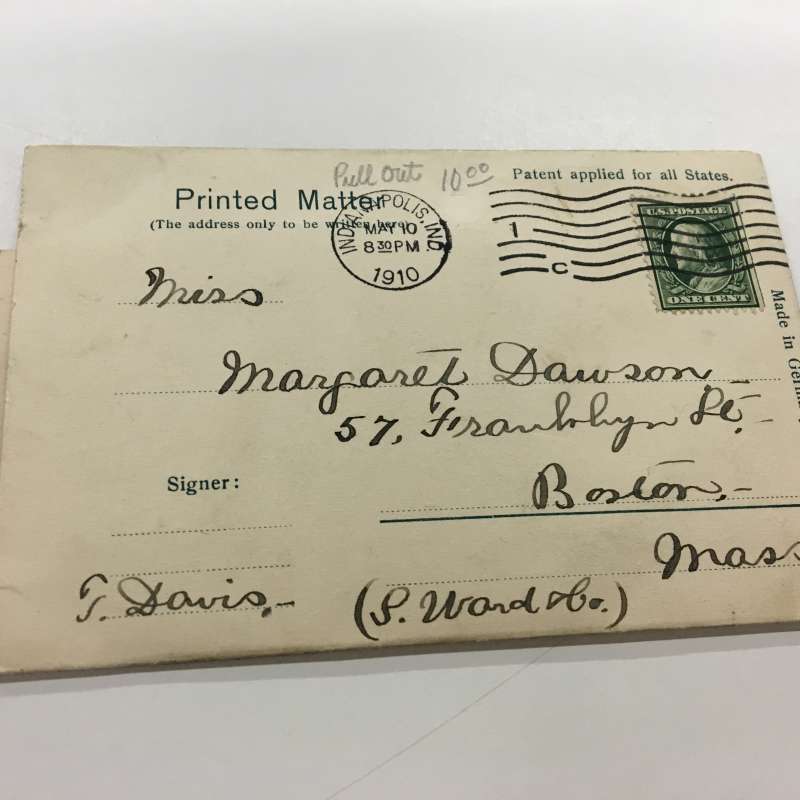 Pull Out 10.00
Patent applied for all States.
Printed Matter
(The address only to be written here)
INDIANAPOLIS, IND.
MAY 10
8 30 PM
1910
1
C
U.S. POSTAGE
ONE CENT
Made in Germ
Miss
Margaret Dawson
57, Franklyn St.
Boston,
Mass
Signer:
T. Davis,
(S. Ward & Co.)